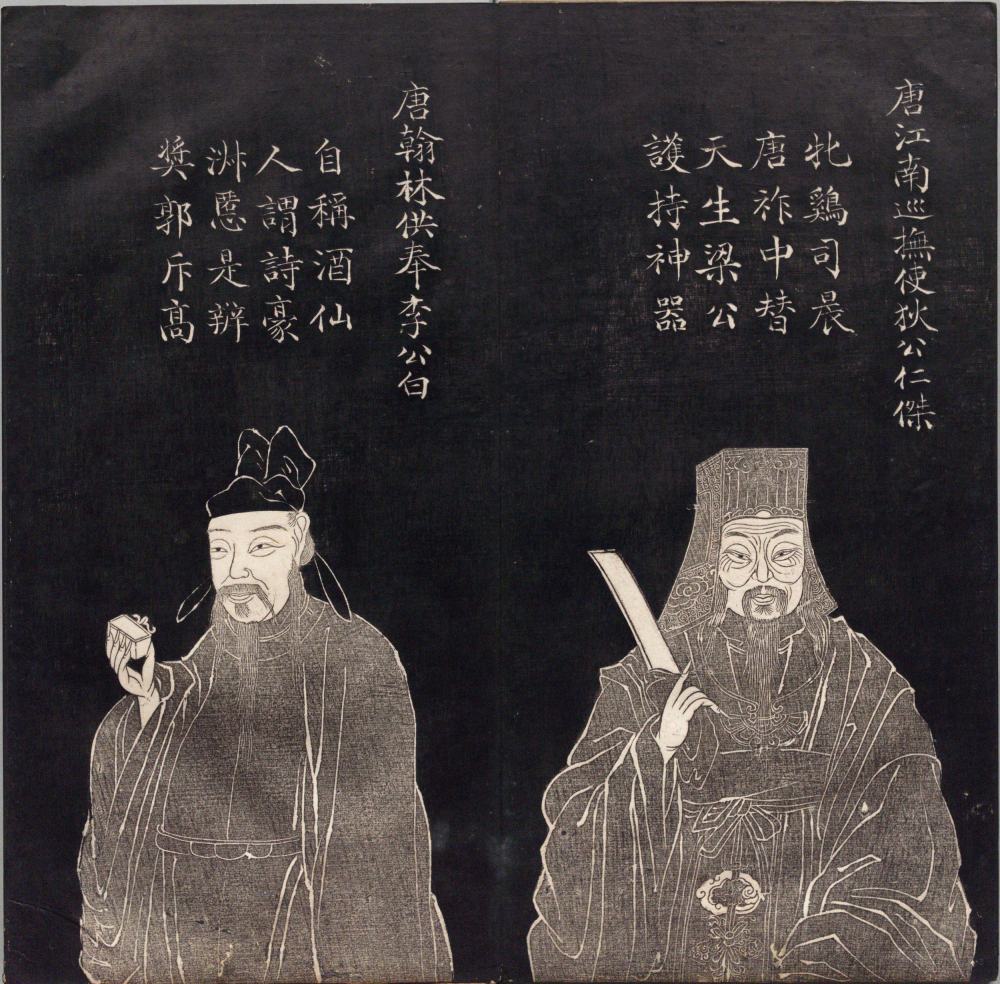 唐江南巡撫使狄公仁傑
牝鷄司晨
唐祚中替
天生梁公
護持神器
唐翰林供奉李公白
自稱酒仙
人謂詩豪
淑慝是辨
奬郭斥髙